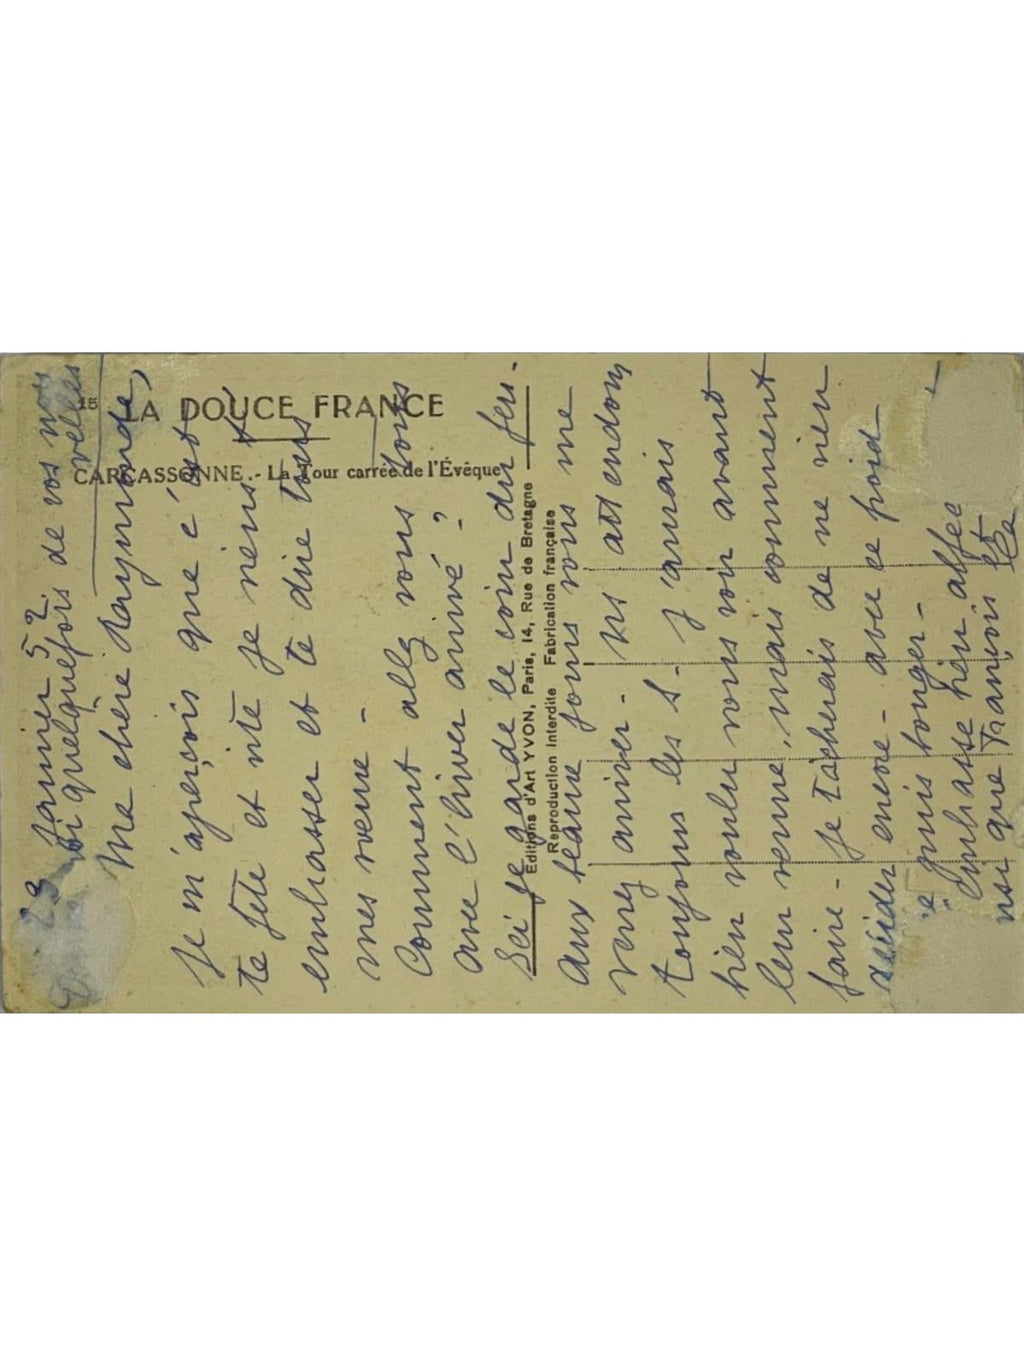 15 LA DOUCE FRANCE
CARCASSONNE. - La Tour carrée de l'Évêque
Editions d'Art YVON, Paris, 14, Rue de Bretagne
Reproduction Interdite Fabrication française
23 Janvier 52.
si quelquefois de vos nou
velles
Ma chère Raymonde,
Je m'aperçois que c'est
ta fête et vite je viens t'
embrasser et te dire tous
mes vœux -
Comment allez vous tous
avec l'hiver arrivé ?
Ici je garde le coin du feu.
Aux beaux jours vous me
verrez arriver - ns attendons
toujours les S - j'aurais
bien voulu vous voir avant
leur venue, mais comment
faire - Je tâcherais de ne rien
décider encore - avec ce froid
je puis bouger -
Embrasse bien affec
nsi que François et